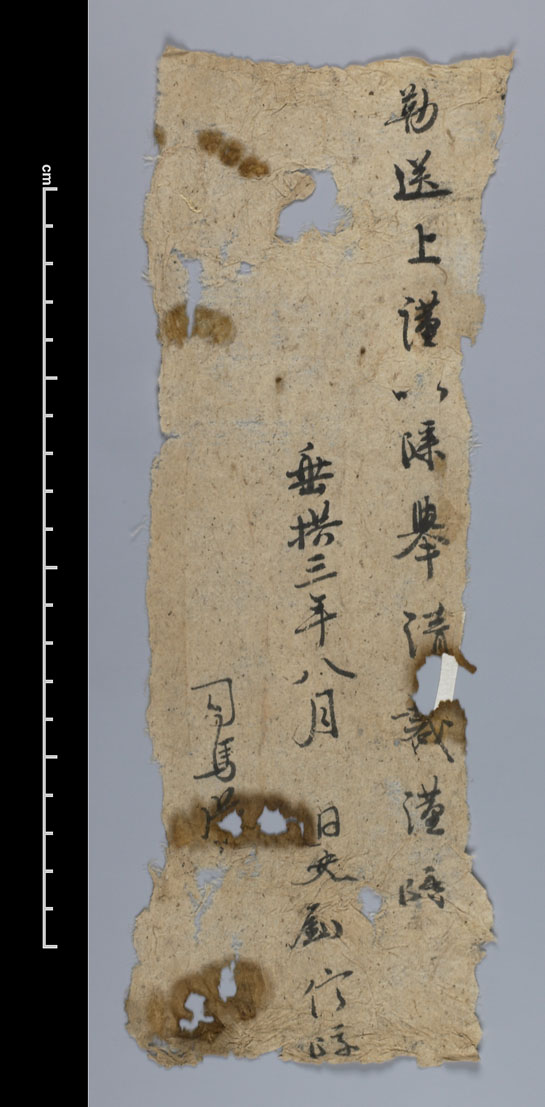 勒送上謹以牒舉請裁謹牒
垂拱三年八月 日史劉行牒
司馬
cm